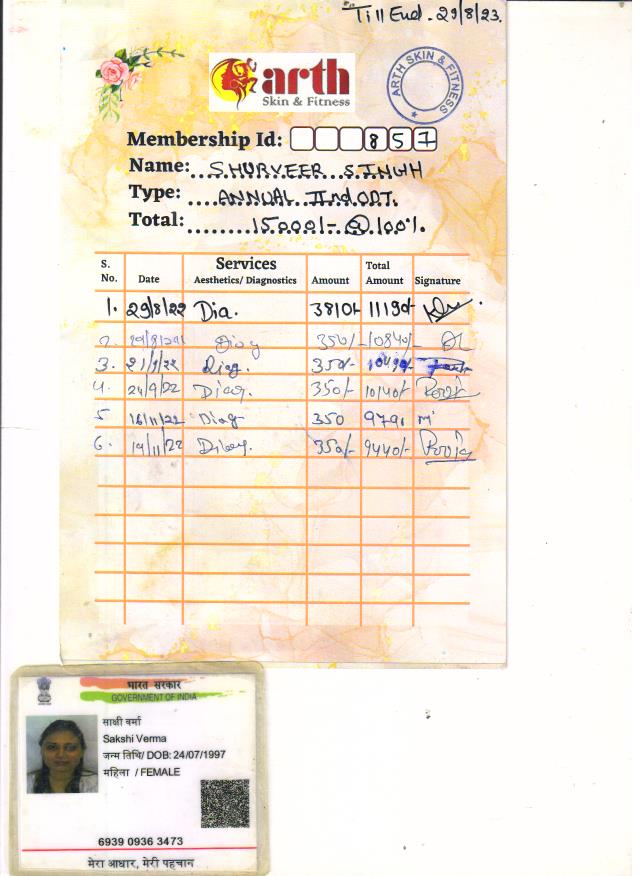 Till End. 29/8/23.
arth
Skin & Fitness
ARTH SKIN & FITNESS
Membership Id: 857
Name: SHURVEER SINGH
Type: ANNUAL IInd OPT.
Total: 15000/- @ 100%.
S. No. Date Services Aesthetics/ Diagnostics Amount Total Amount Signature
1. 29/8/22 Dia. 3810/- 11190/-
2. Diag 350/- 10840/-
3. Diag. 350/- 10490/-
4. 24/9/22 Diag. 350/- 10140/-
5 16/11/22 Diag 350 979
6. 19/11/22 Diag. 350/- 9440/-
भारत सरकार
GOVERNMENT OF INDIA
साक्षी वर्मा
Sakshi Verma
जन्म तिथि/ DOB: 24/07/1997
महिला / FEMALE
6939 0936 3473
मेरा आधार, मेरी पहचान